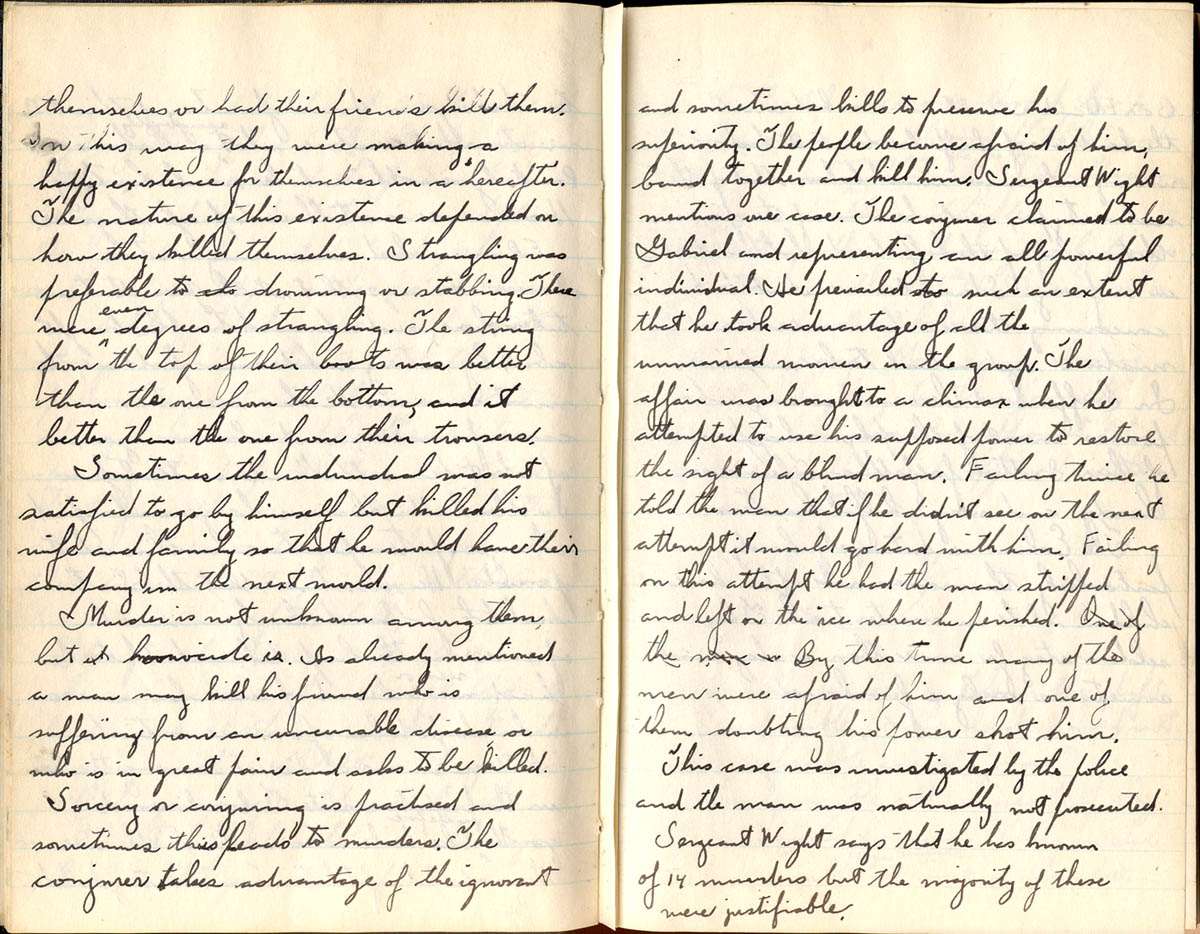 themselves or had their friends kill them.
In this way they were making a
happy existence for themselves in a hereafter.
The nature of this existence depended on
how they killed themselves. Strangling was
preferable to drowning or stabbing. There
were even degrees of strangling. The string
from the top of their boots was better
than the one from the bottom, and it
better than the one from their trousers.
Sometimes the individual was not
satisfied to go by himself but killed his
wife and family so that he would have their
company in the next world.
Murder is not unknown among them,
but homocide is. As already mentioned
a man may kill his friend who is
suffering from an uncurable disease, or
who is in great pain and asks to be killed.
Sorcery or conjuring is practised and
sometimes this leads to murders. The
conjurer takes advantage of the ignorant
and sometimes kills to preserve his
superiority. The people become afraid of him,
band together and kill him. Sergeant Wight
mentions one case. The conjurer claimed to be
Gabriel and representing an all powerful
individual. He prevailed to such an extent
that he took advantage of all the
unmarried women in the group. The
affair was brought to a climax when he
attempted to use his supposed power to restore
the sight of a blind man. Failing twice he
told the man that if he didn't see on the next
attempt it would go hard with him. Failing
on this attempt he had the man stripped
and left on the ice where he perished. One of
the men By this time many of the
men were afraid of him and one of
them doubting his power shot him.
This case was investigated by the police
and the man was naturally not prosecuted.
Sergeant Wight says that he has known
of 14 murders but the majority of these
were justifiable.